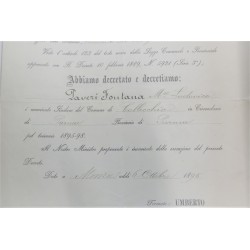 Visto l'articolo 123 del testo unico della Legge Comunale e Provinciale
approvato con R. Decreto 10 febbraio 1889, N.° 5921 (Serie 3ª);
Abbiamo decretato e decretiamo:
Paveri Fontana M.se Lodovico
è nominato Sindaco del Comune di in Circondario
di Provincia di
pel triennio 1895-98.
Il Nostro Ministro proponente è incaricato della esecuzione del presente
Decreto.
Dato a Monza addì 6 Ottobre 1895
Firmato: UMBERTO